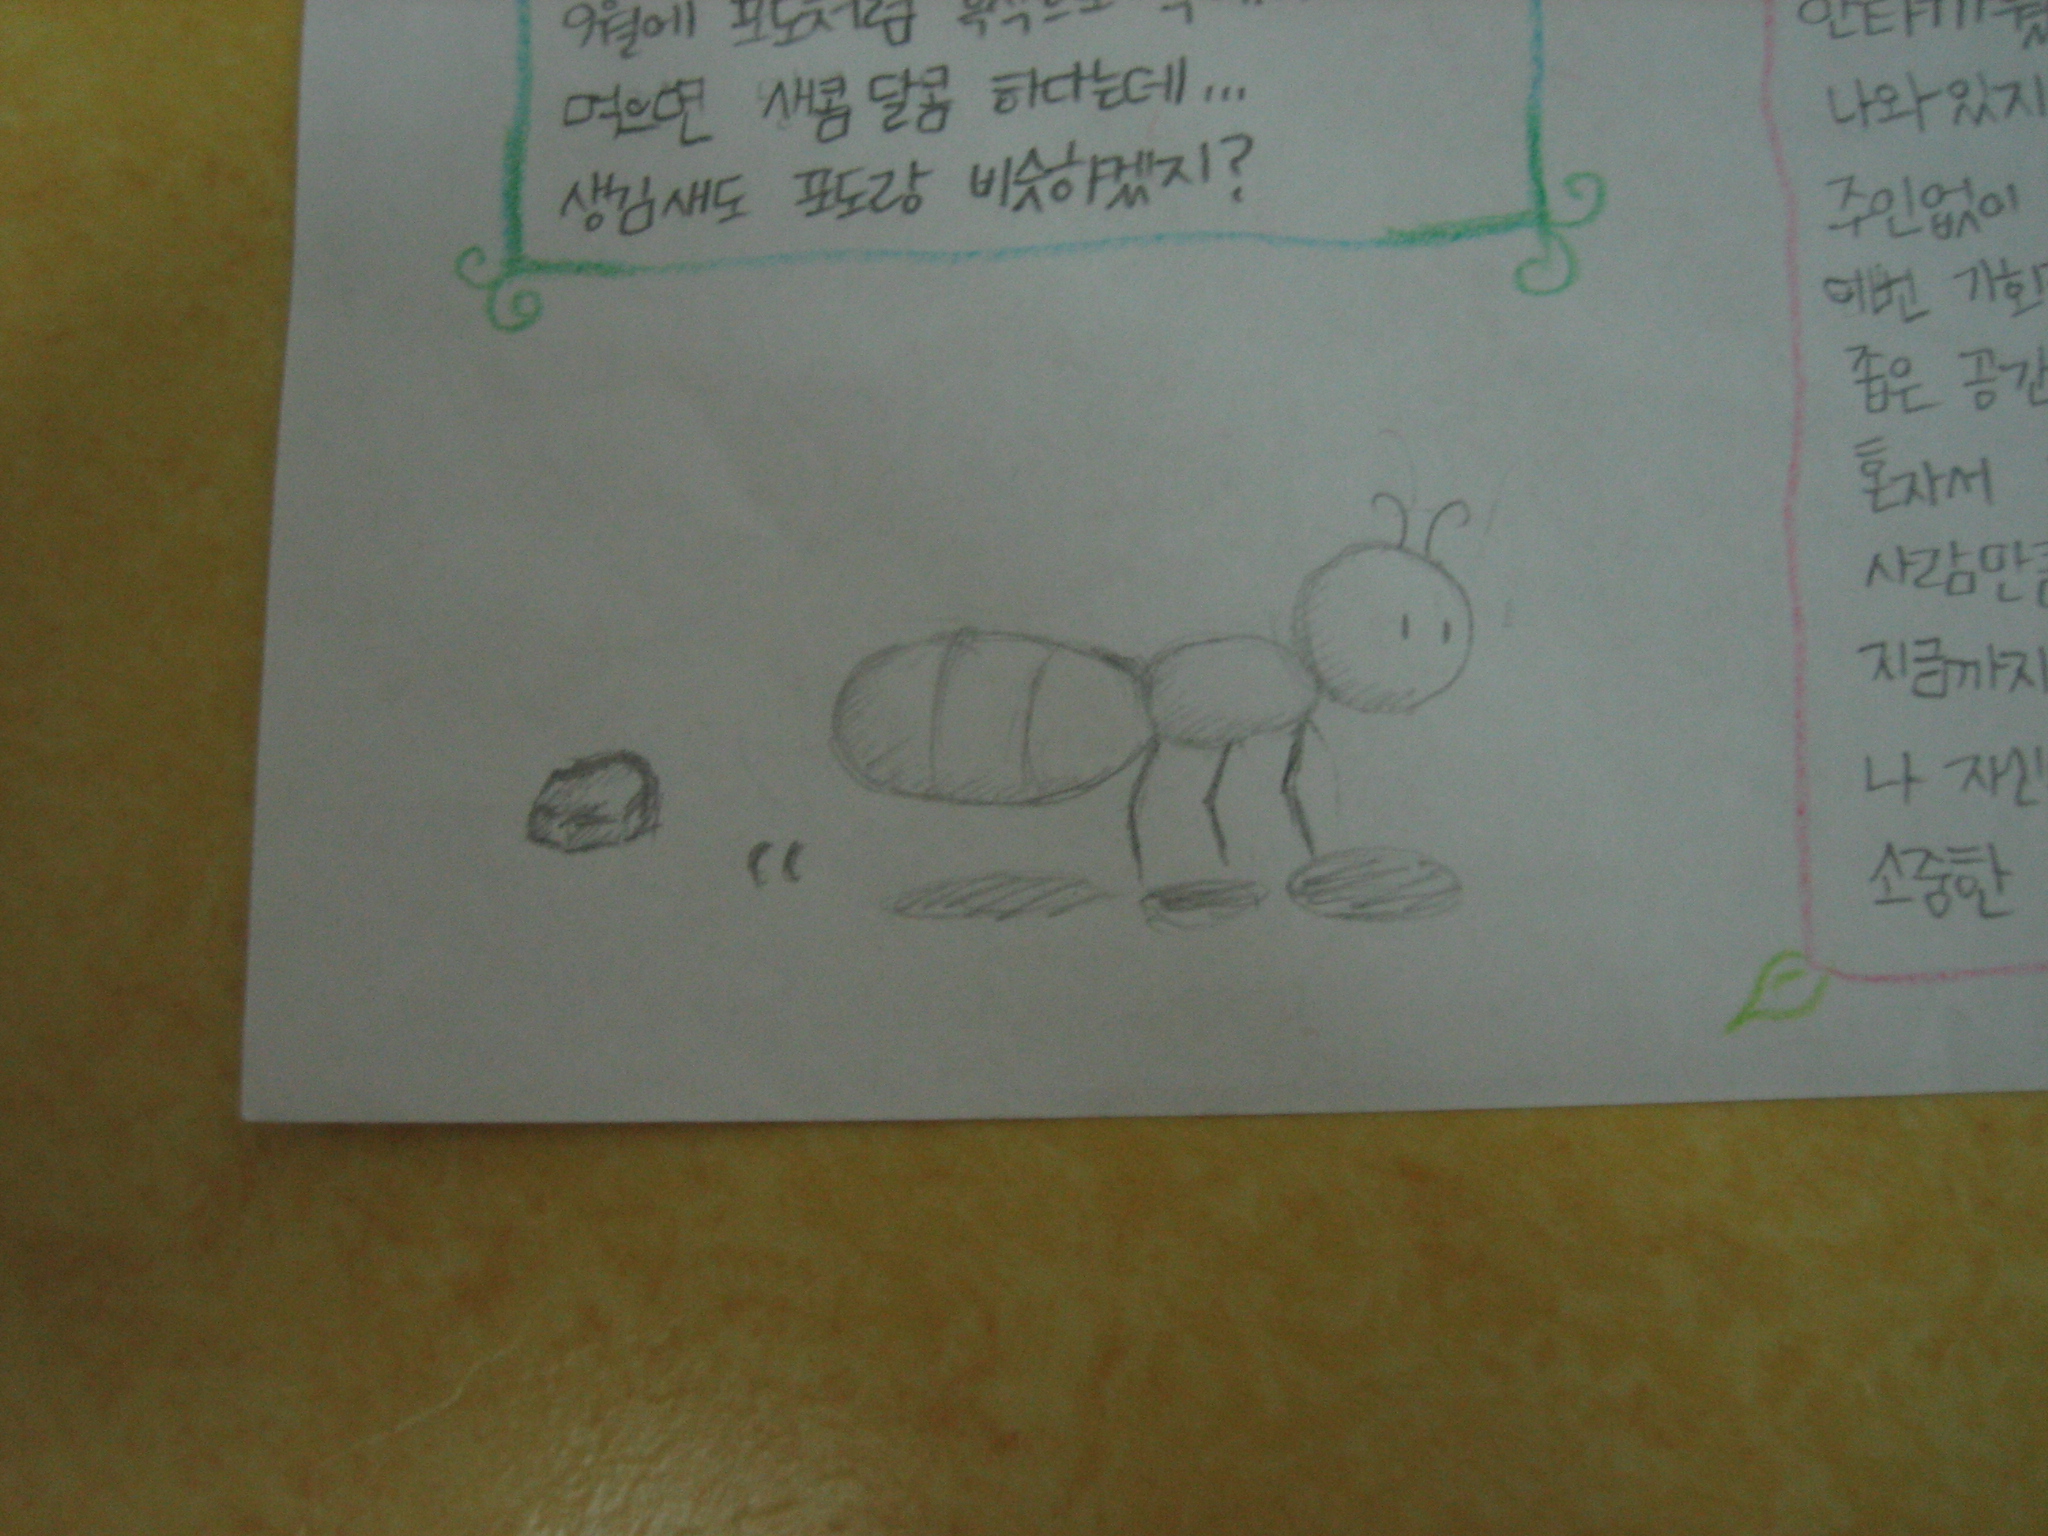 9월에 포도처럼
먹으면 새콤달콤 하다는데...
생김새도 포도랑 비슷하겠지?
안타까웠
나와있지
주인없이
이번 기회
좁은 공간
혼자서
사람만큼
지금까지
나 자신
소중한